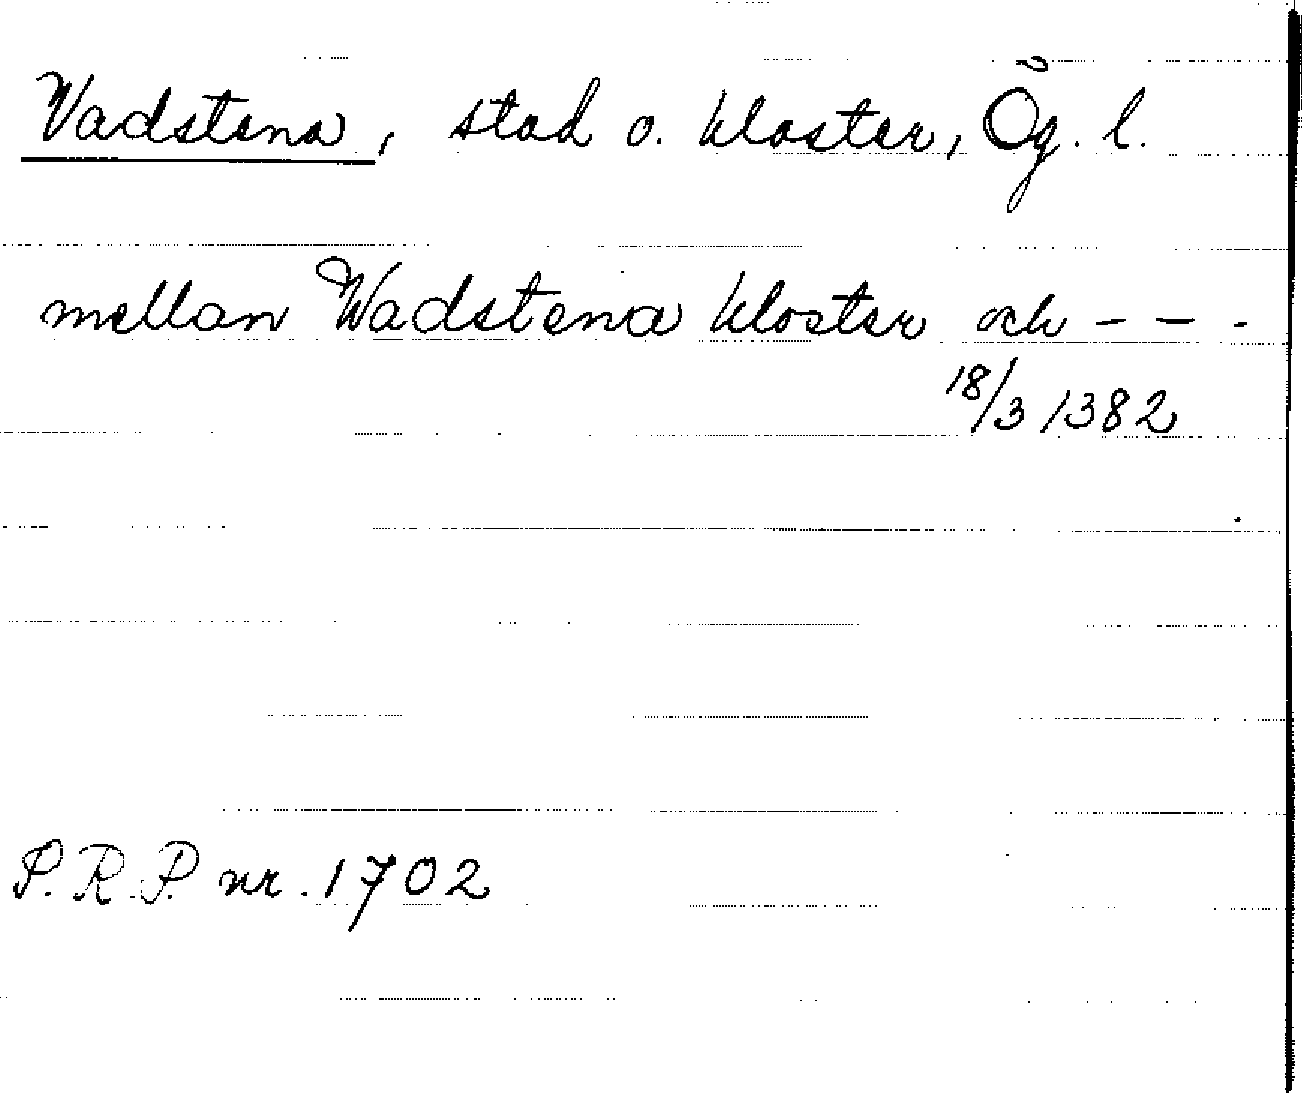 Vadstena, stad o. kloster, Ög. l.
mellan Wadstena kloster och - - -
18/3 1382
S.R.P. nr. 1702